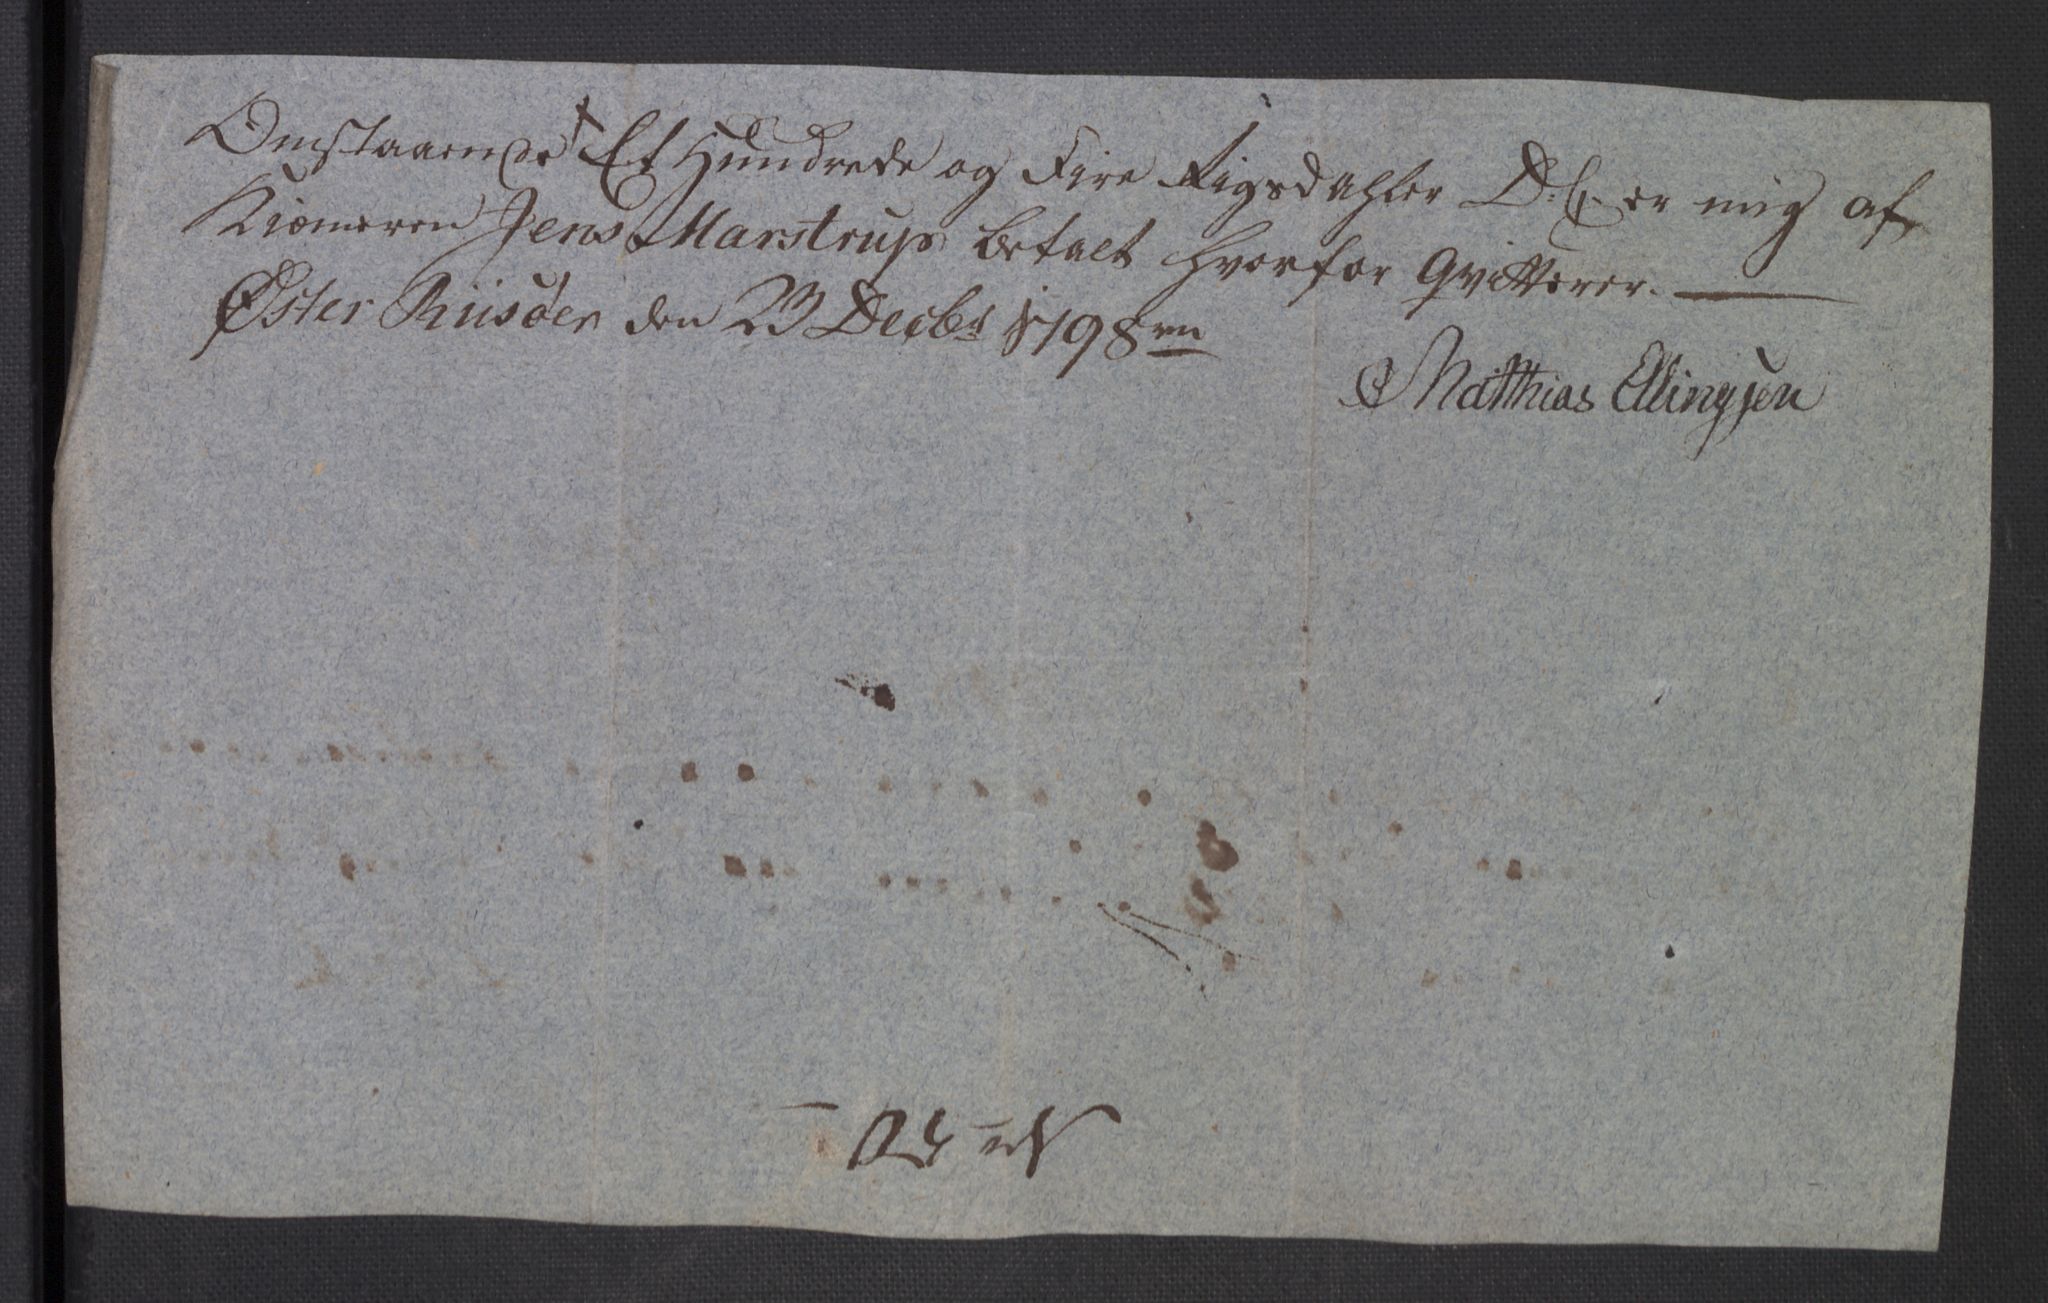 Omstaaende Et Hundrede og Fire Rigsdahler D: C: er mig af
Kiømeren Jens Marstrup betalt hvorfor Qvitterer.
Øster Riisöer den 23 Decbr 1798
Matthias Ellingsen